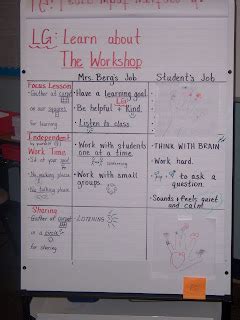 LG: Learn about
The Workshop
Mrs. Berg's Job
Student's Job
Focus Lesson
• Gather at carpet
on our squares
for learning
• Have a learning goal.
LG:
• Be helpful + Kind.
• Listen to class
Independent
Work Time
• Sit at your
• No making noise
• No talking
• Work with students
one at a time.
• Work with small
groups
• THINK WITH BRAIN
Work hard.
to ask a
question.
Sounds + feels quiet
and calm
Sharing
• Gather at carpet
in a
for sharing
LISTENING